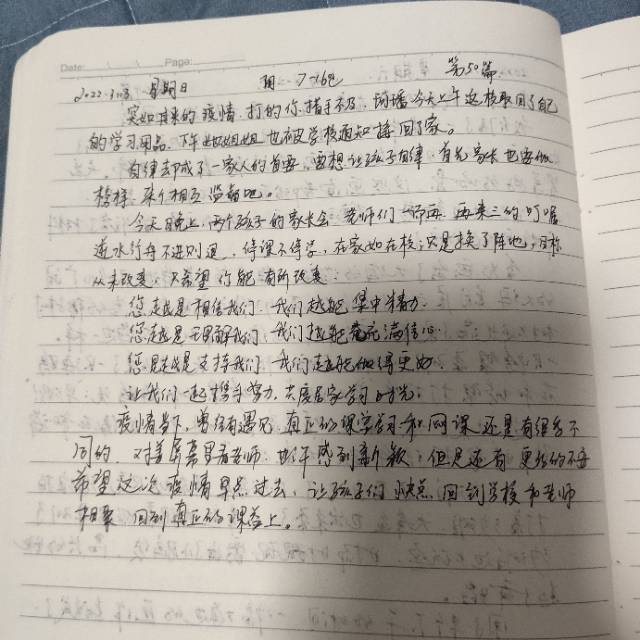 Date: Page:
2022. 星期日 阴 7-16℃ 第50篇
突如其来的疫情,打的你措手不及,诗瑶今天上午返校取回了自己
的学习用品,下午她姐姐也被学校通知接回了家。
自律却成了一家人的首要,要想让孩子自律,首先家长也要做
榜样,来个相互监督吧。
今天晚上,两个孩子的家长会,老师们一而再,再来三的叮咛
逆水行舟不进则退,停课不停学,在家如在校,只是换了阵地,目标
从未改变,只希望你能有所改变.
您越是相信我们,我们越能集中精力.
您越是理解我们,我们越能充满信心.
您越是支持我们,我们越能做得更好.
让我们一起携手努力,共度居家学习时光.
疫情当下,曾经有遇见,真正的课堂学习和网课还是有很多不
同的,对着屏幕里看老师,也许感到新颖,但是还有更多的不安
希望这次疫情早点过去,让孩子们快点回到学校和老师
相聚,回到真正的课堂上。